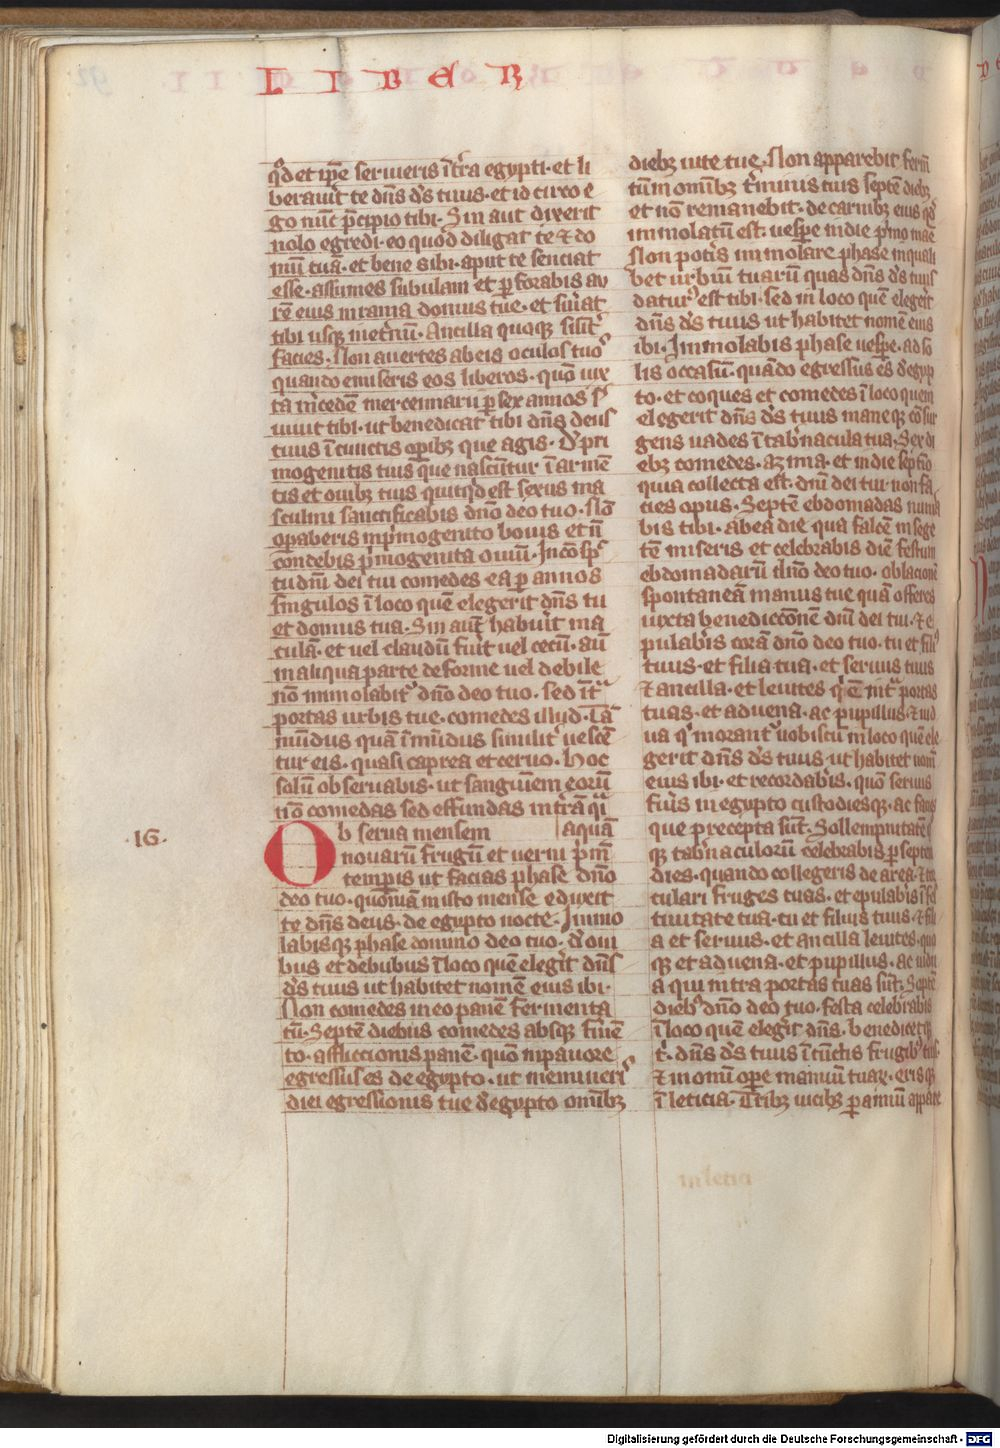 LIBER
qd̄ et ip̄e servieris ī t̄ra egypti · et li
beravit te dn̄s ds̄ tuus · et idcirco e
go nūc p̄cipio tibi · Sin aut dixerit
nolo egredi · eo quod diligat te et do
mū tuā · et bene sibi · aput te senciat
esse · assumes subulam et p̄forabis au
rē eius in ianua domus tue · et s̄viat
tibi usq̄ in et̄nū · Ancilla quoq̄ silīt
facies · Non avertes ab eis oculos tuos
quando emiseris eos liberos · quō iux
ta m̄cedē mercennarii p̄ sex annos s̄
vivit tibi · ut benedicat tibi dn̄s deus
tuus ī cunctis op̄ibꝫ que agis · De pri
mogenitis tuis que nascūtur ī armē
tis et ovibꝫ tuis quitqd̄ est sexus ma
sculini sanctificabis dn̄o deo tuo · Nō
op̄aberis in p̄mogenito bovis et n̄
tondebis p̄mogenita oviū · In cōsp̄c
tu dn̄i dei tui comedes ea p̄ annos
singulos ī loco quē elegerit dn̄s tu
et domus tua · Sin aut̄ habuīt ma
culā · et vel claudū fuīt vel cecū · aut̄
in aliqua parte deforme vel debile
nō immolabit᷑ dn̄o deo tuo · sed īt̄
portas urbis tue · comedes illud · tā
mūdus quā īmūdus similit̄ vescē
tur eis · quasi caprea et cervo · hoc
solū observabis · ut sanguinem eorū
nō comedas sed effundas in t̄rā q̄i
aquā
·16·
Observa mensem
novarū frugū et verni p̄mū
temp̄is ut facias phase dn̄o
deo tuo · quoniā in isto mense eduxit
te dn̄s deus · de egypto nocte · Immo
labisq̄ phase domino deo tuo · de ovi
bus et de bubus ī loco quē elegīt dn̄s
ds̄ tuus ut habitet nomē eius ibi ·
Non comedes in eo panē fermenta
tū · Septē diebus comedes absq̄ f̄mē
to · affliccionis panē · quō in pavore
egressus es de egypto · ut memineris
diei egressionis tue de egypto omībꝫ
diebꝫ vite tue · Non apparebit ferm̄
tum omībꝫ t̄minis tuis septē diebꝫ
et nō remanebit · de carnibꝫ eius qd̄
immolatū est · vesp̄e in die p̄mo mae
Non pot̄is immolare phase in quali
bet urbiū tuarū quas dn̄s ds̄ tuus
datur᷑ est tibi · sed in loco quē elegerit
dn̄s ds̄ tuus ut habitet nomē eius
ibi · Immolabis phase vesp̄e · ad so
lis occasū · quādo egressus es de egyp
to · et coques et comedes ī loco quem
elegerit dn̄s ds̄ tuus maneq̄ cōsur
gens vades ī tab̄nacula tua · Sex di
ebꝫ comedes · azima · et in die septīo
quia collecta est · dn̄i dei tui non fa
ties opus · Septē ebdomadas num̄a
bis tibi · ab ea die qua falcē in sege
tē miseris et celebrabis diē festum
ebdomadarū dn̄o deo tuo · oblacionē
spontaneā manus tue quā offeres
iuxta benediccionē dn̄i dei tui · et e
pulab̄is corā dn̄o deo tuo · tu et fili᷒
tuus · et filia tua · et servus tuus
et ancilla · et levites q̄ ē int̄ portas
tuas · et advena · ac pupillus · et vid
ua q̄ morant᷑ vobiscū in loco quē ele
gerit dn̄s ds̄ tuus ut habitet nom̄
eius ibi · et recordab̄is · quō servus
fūis in egypto custodiesq̄ · ac facies
que precepta sūt · Sollempnitatē
q̄ tab̄naculorū celebrabis p̄ septem
dies · quando collegeris de area · et tor
culari fruges tuas · et epulabis ī fes
tivitate tua · tu et filius tuus · et fili
a et servus · et ancilla levites · quo
q̄ et advena · et pupillus · ac vidu
a qui intra portas tuas sūt · Septē
dieb᷒ dn̄o deo tuo · festa celebrabis
ī loco quē elegīt dn̄s · benedicetq̄
t̄ · dn̄s ds̄ tuus ī cūctis frugib᷒ tuis
et in omni op̄e manuū tuaꝝ · erisq̄
ī leticia · Tribꝫ vicibꝫ p̄ annū appare
in letia
Digitalisierung gefördert durch die Deutsche Forschungsgemeinschaft - DFG